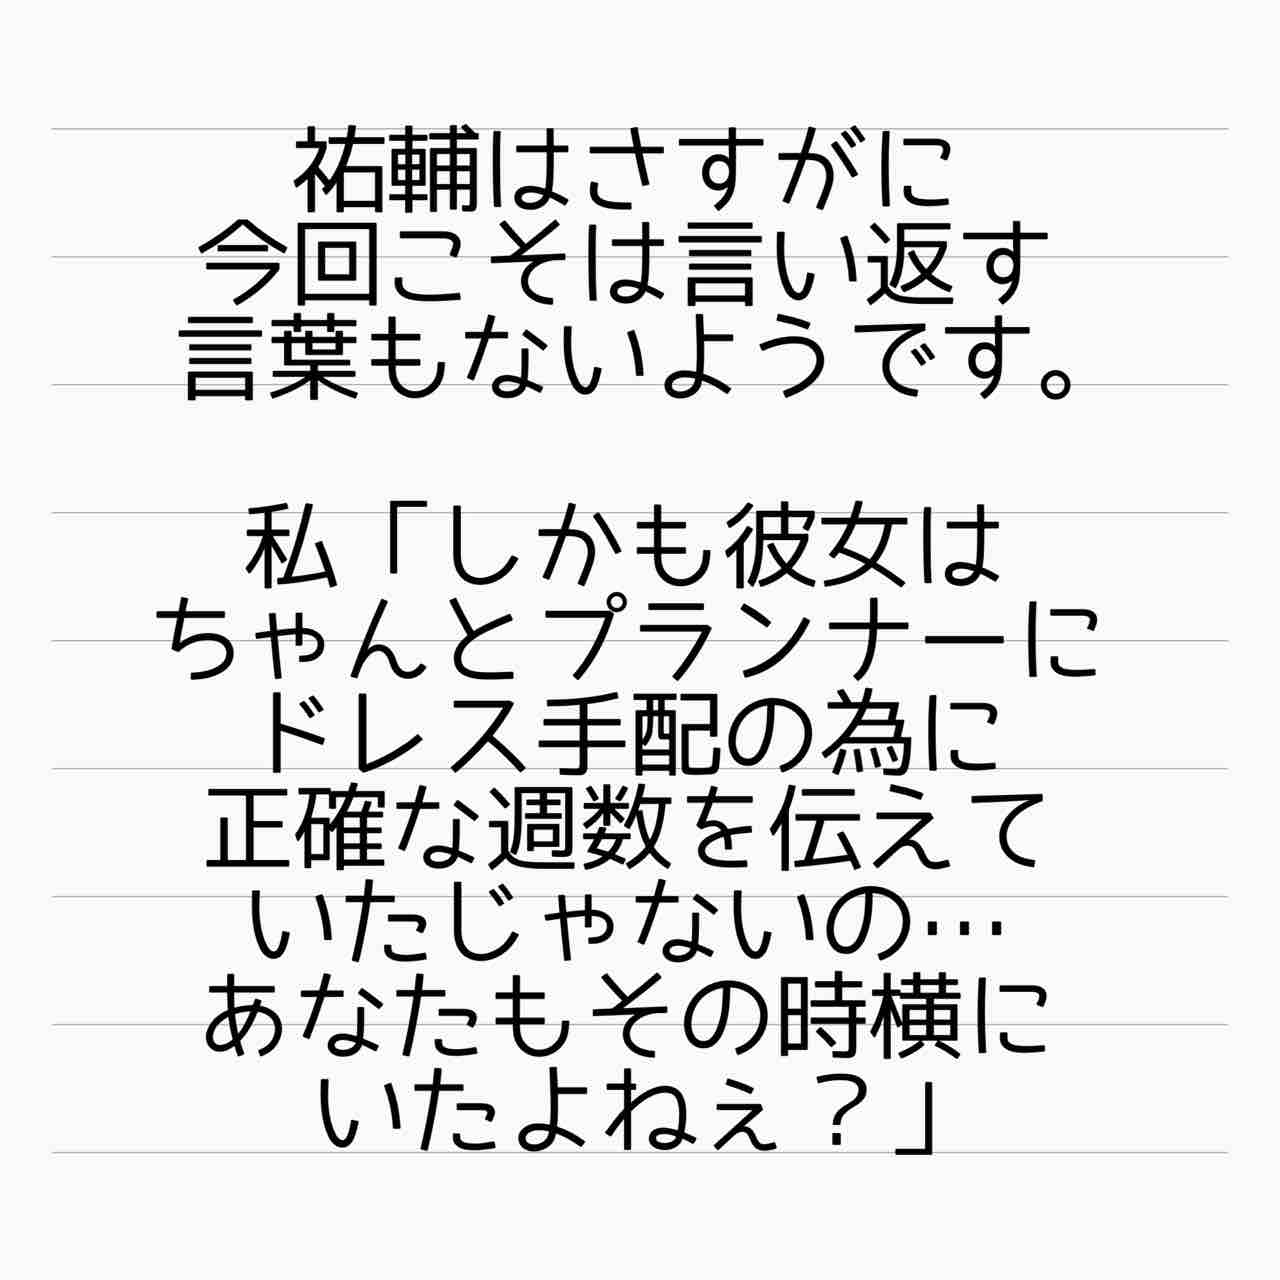 祐輔はさすがに
今回こそは言い返す
言葉もないようです。
私「しかも彼女は
ちゃんとプランナーに
ドレス手配の為に
正確な週数を伝えて
いたじゃないの…
あなたもその時横に
いたよねぇ？」